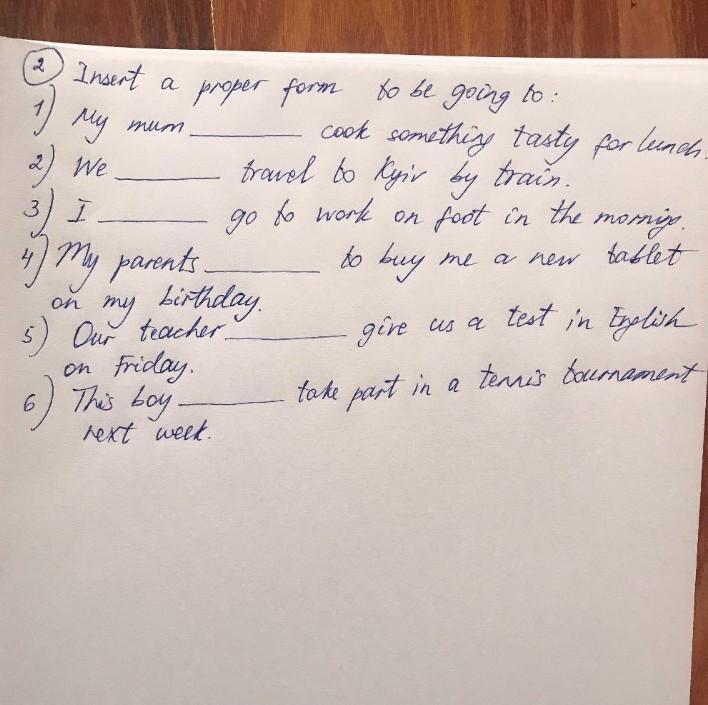 2 Insert a proper form to be going to:
1) My mum ________ cook something tasty for lunch.
2) We ________ travel to Kyiv by train.
3) I ________ go to work on foot in the morning.
4) My parents ________ to buy me a new tablet
on my birthday.
5) Our teacher ________ give us a test in English
on Friday.
6) This boy ________ take part in a tennis tournament
next week.